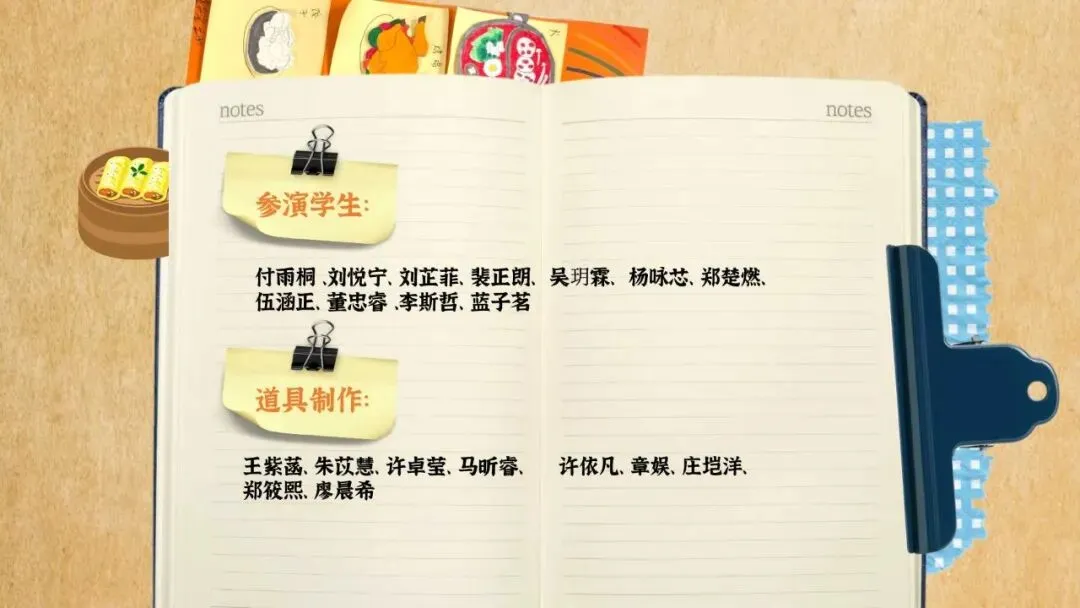 notes
notes
参演学生:
付雨桐、刘悦宁、刘芷菲、裴正朗、吴玥霖、杨咏芯、郑楚燃、
伍涵正、董忠睿、李斯哲、蓝子茗
道具制作:
王紫菡、朱苡慧、许卓莹、马昕睿、 许依凡、章娱、庄垲洋、
郑筱熙、廖晨希